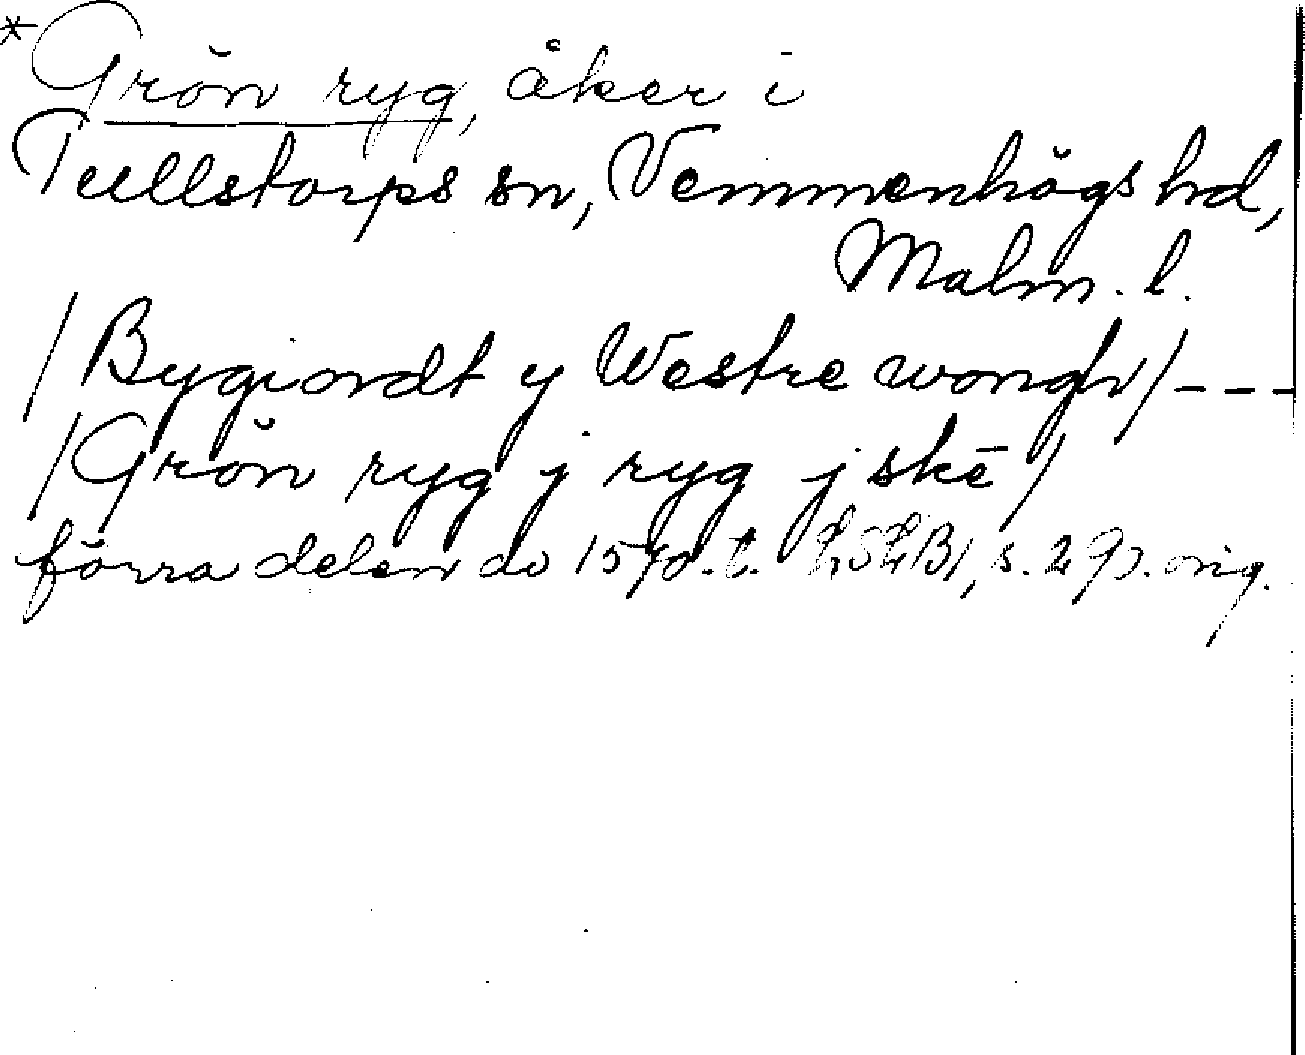 *Grön ryg, åker i
Tullstorps sn, Vemmenhögs hd,
Malm. l.
/Bygiordt y Westre wongh/ - - -
/Grön ryg j ryg j skē/
förra delen av 1570.t. LSLB1, s. 29). orig.